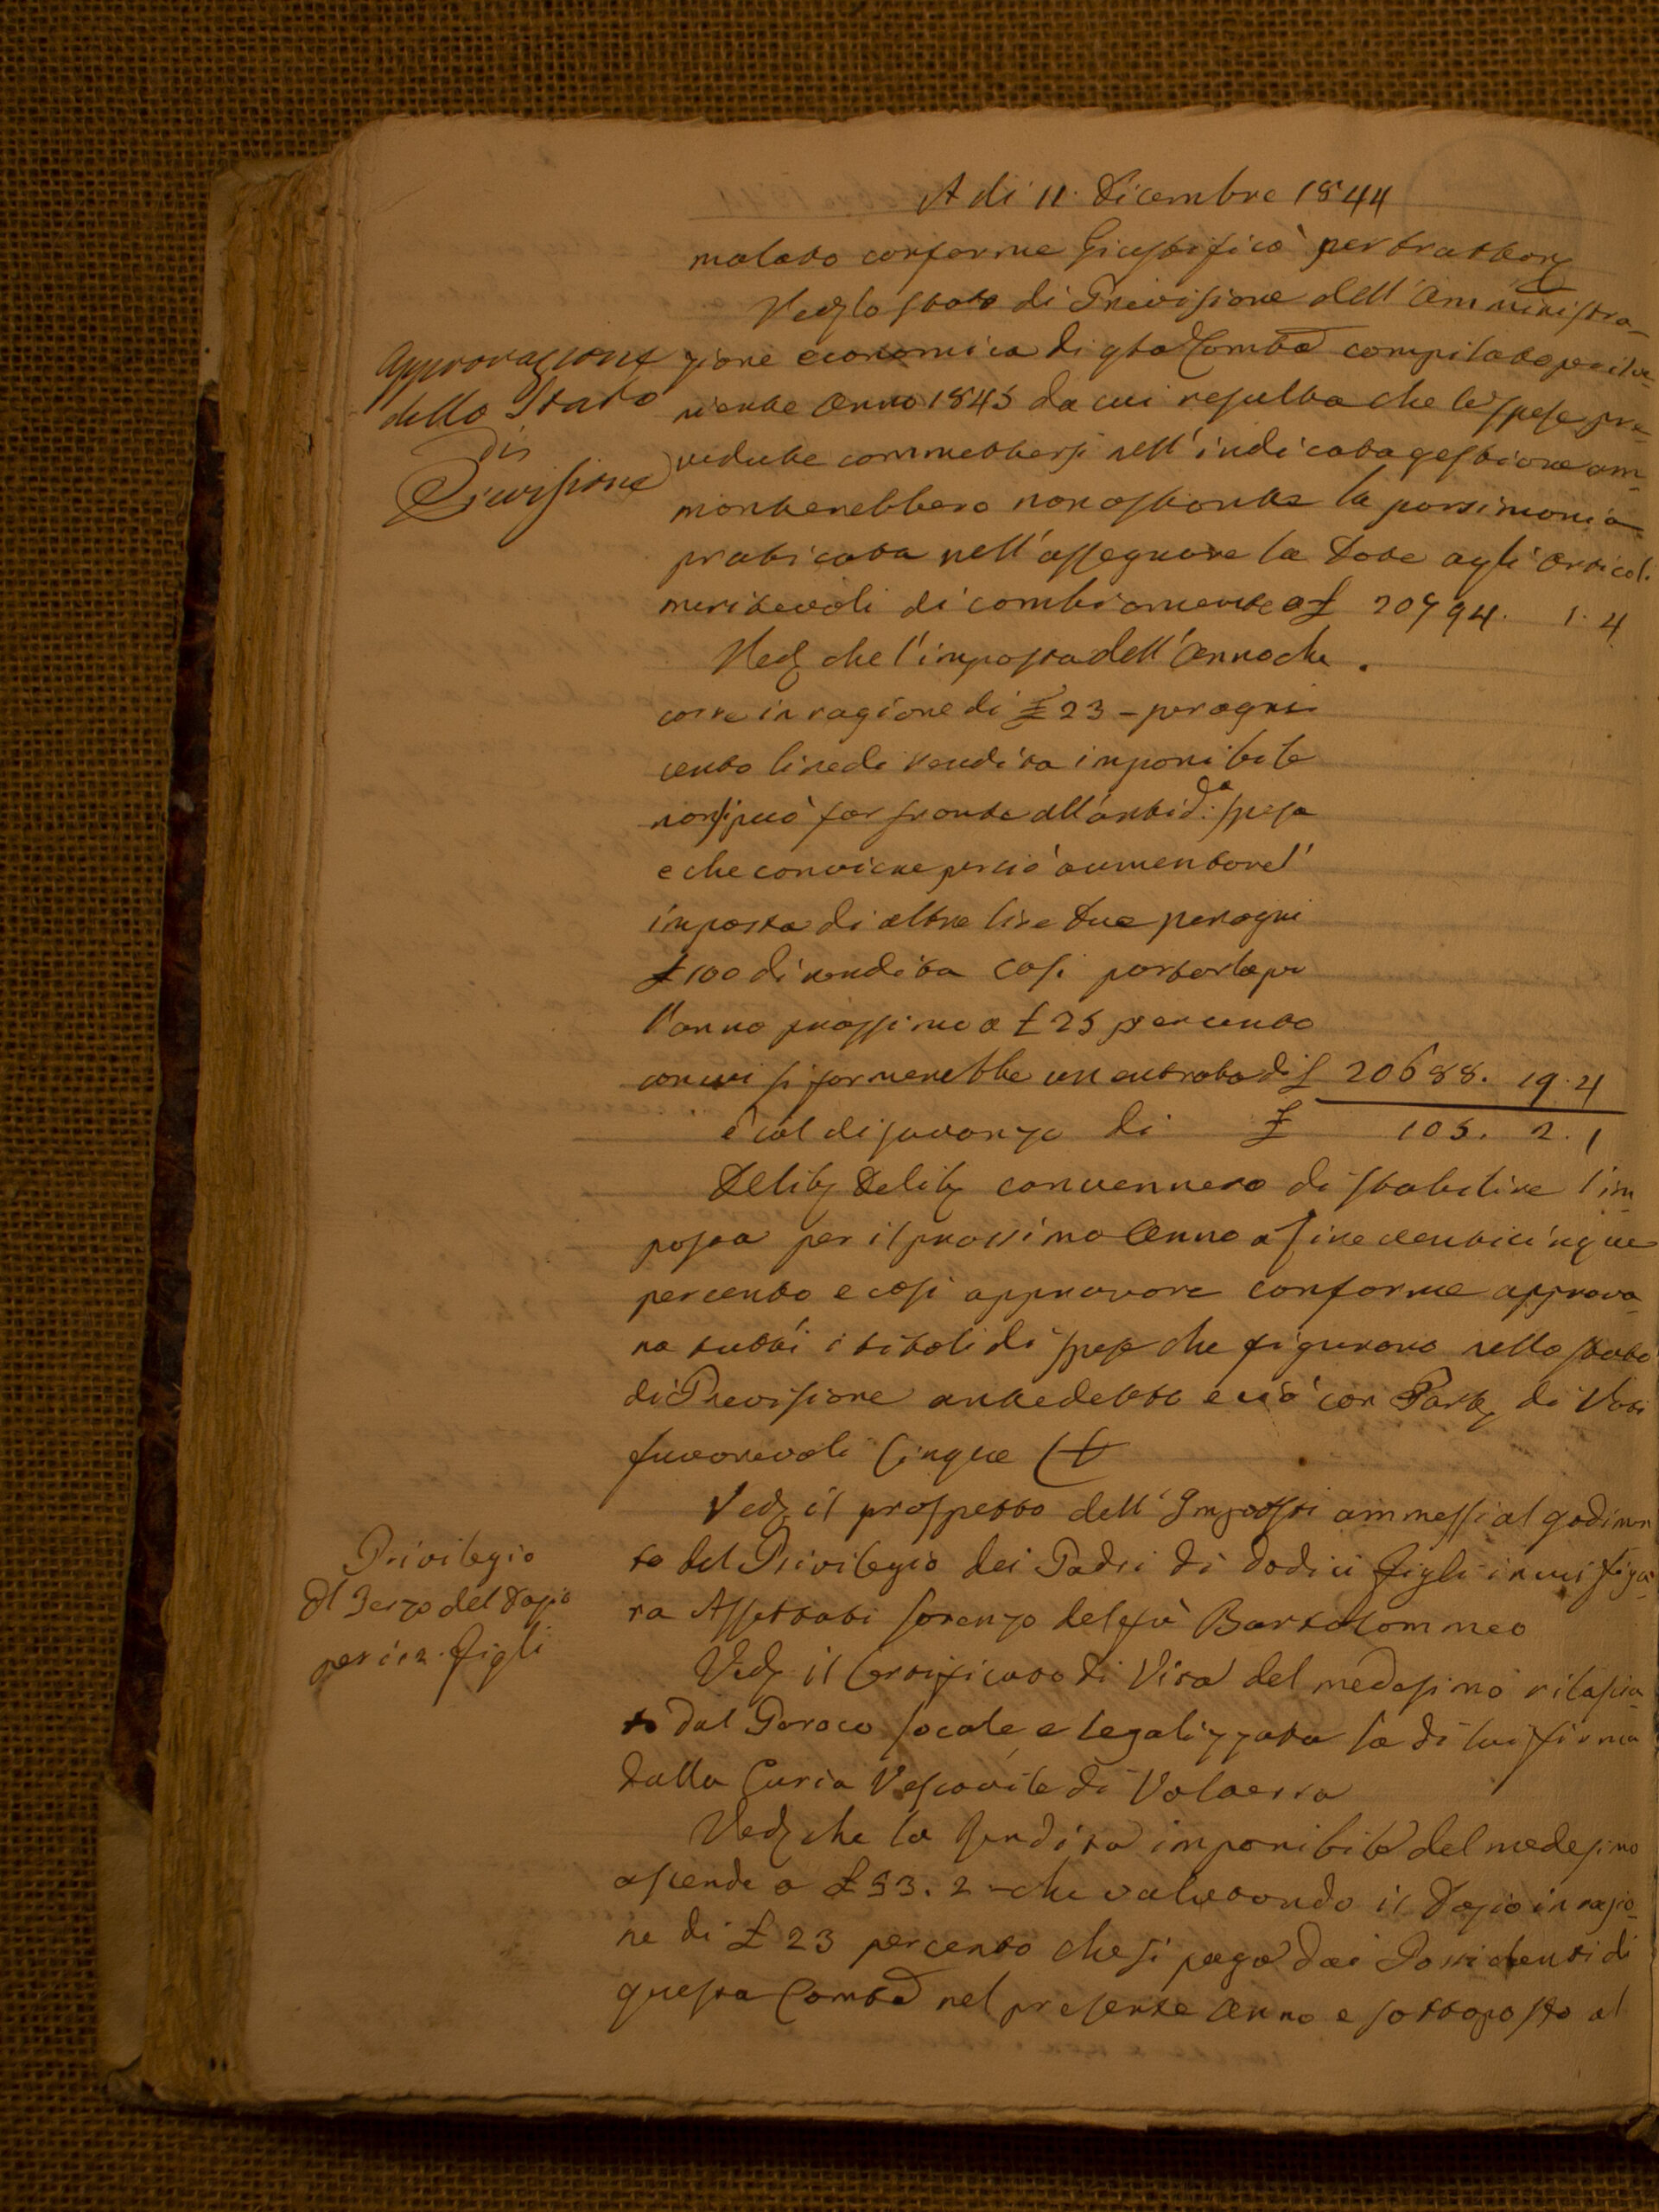 A di 11. Dicembre 1844
malato conforme Giustificò per trattong
Approvazione
dello Stato
di
Previsione
Vedlo stato di Previsione dell'Amministra-
zione economica di qta Comtà compilato peril ve-
niente Anno 1845 da cui resulta che le spese pre-
vedute commettersi nell'indicata gestione am-
monterebbero nonostante la parsimonia
praticata nell'assegnare la Dote agli Articoli
meritevoli di cambiamento a £ 20794. 1. 4
Ved che l'imposta dell'Anno che
corre in ragione di £ 23 - per ogni
cento lire di rendita imponibile
non si può far fronte all'antid.a spesa
e che conviene perciò aumentare l'
imposta di altre lire due per ogni
£ 100 di rendita così portarla per
l'anno prossimo a £ 25 per cento
con cui si formerebbe un entrata di £ 20688. 19. 4
e col disavanzo di £ 105. 2. 1
Delib Delib convennero di stabilire l'im-
posta per il prossimo Anno a lire venticinque
per cento e così approvare conforme approva-
no tutti i titoli di spese che figurano nello stato
di Previsione antedetto e ciò con Part di Voti
favorevoli Cinque
Privilegio
Al Terzo del Dazio
per i 12. figli
Ved il prospetto dell'Imposti ammessi al godimen
to del Privilegio dei Padri di dodici figli in cui figu-
ra Assettati Lorenzo del fù Bartolommeo
Ved il Certificato di Vita del medesimo rilascia-
to dal Paroco locale e legalizzata la di lui firma
dalla Curia Vescovile di Volterra
Ved che la Rendita imponibile del medesimo
ascende a £ 53. 2 - che valutando il Dazio in ragio-
ne di £ 23 per cento che si paga dai Possidenti di
questa Comtà nel presente Anno e sottoposto al